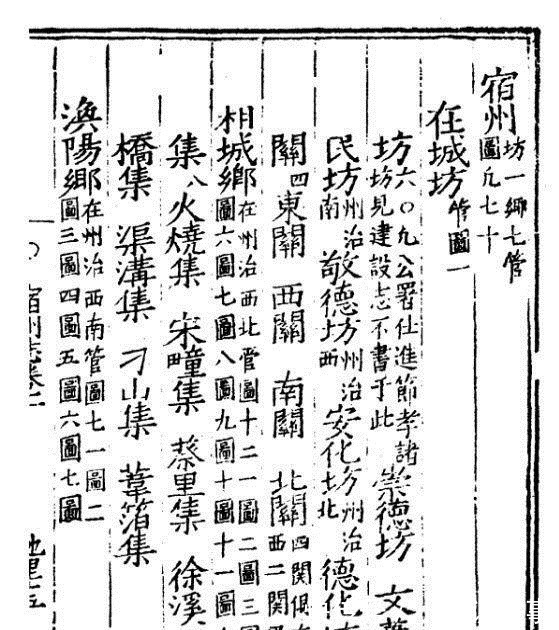 宿州坊一鄉七管圖凡七十
在城坊管圖一
坊六〇凡公署仕進節孝諸坊見建設志不書于此 崇德坊 文
民坊州治南 敬德坊州治西 安化坊州治北 德化
關四 東關 西關 南關 北關四關俱西二關
相城鄉在州治西北管圖十二一圖二圖三圖六圖七圖八圖九圖十圖十一圖
集八 火燒集 宋疃集 蔡里集 徐溪
橋集 渠溝集 刁山集 葦箔集
渙陽鄉在州治西南管圖七一圖二圖三圖四圖五圖六圖七圖
宿州志卷二 地理